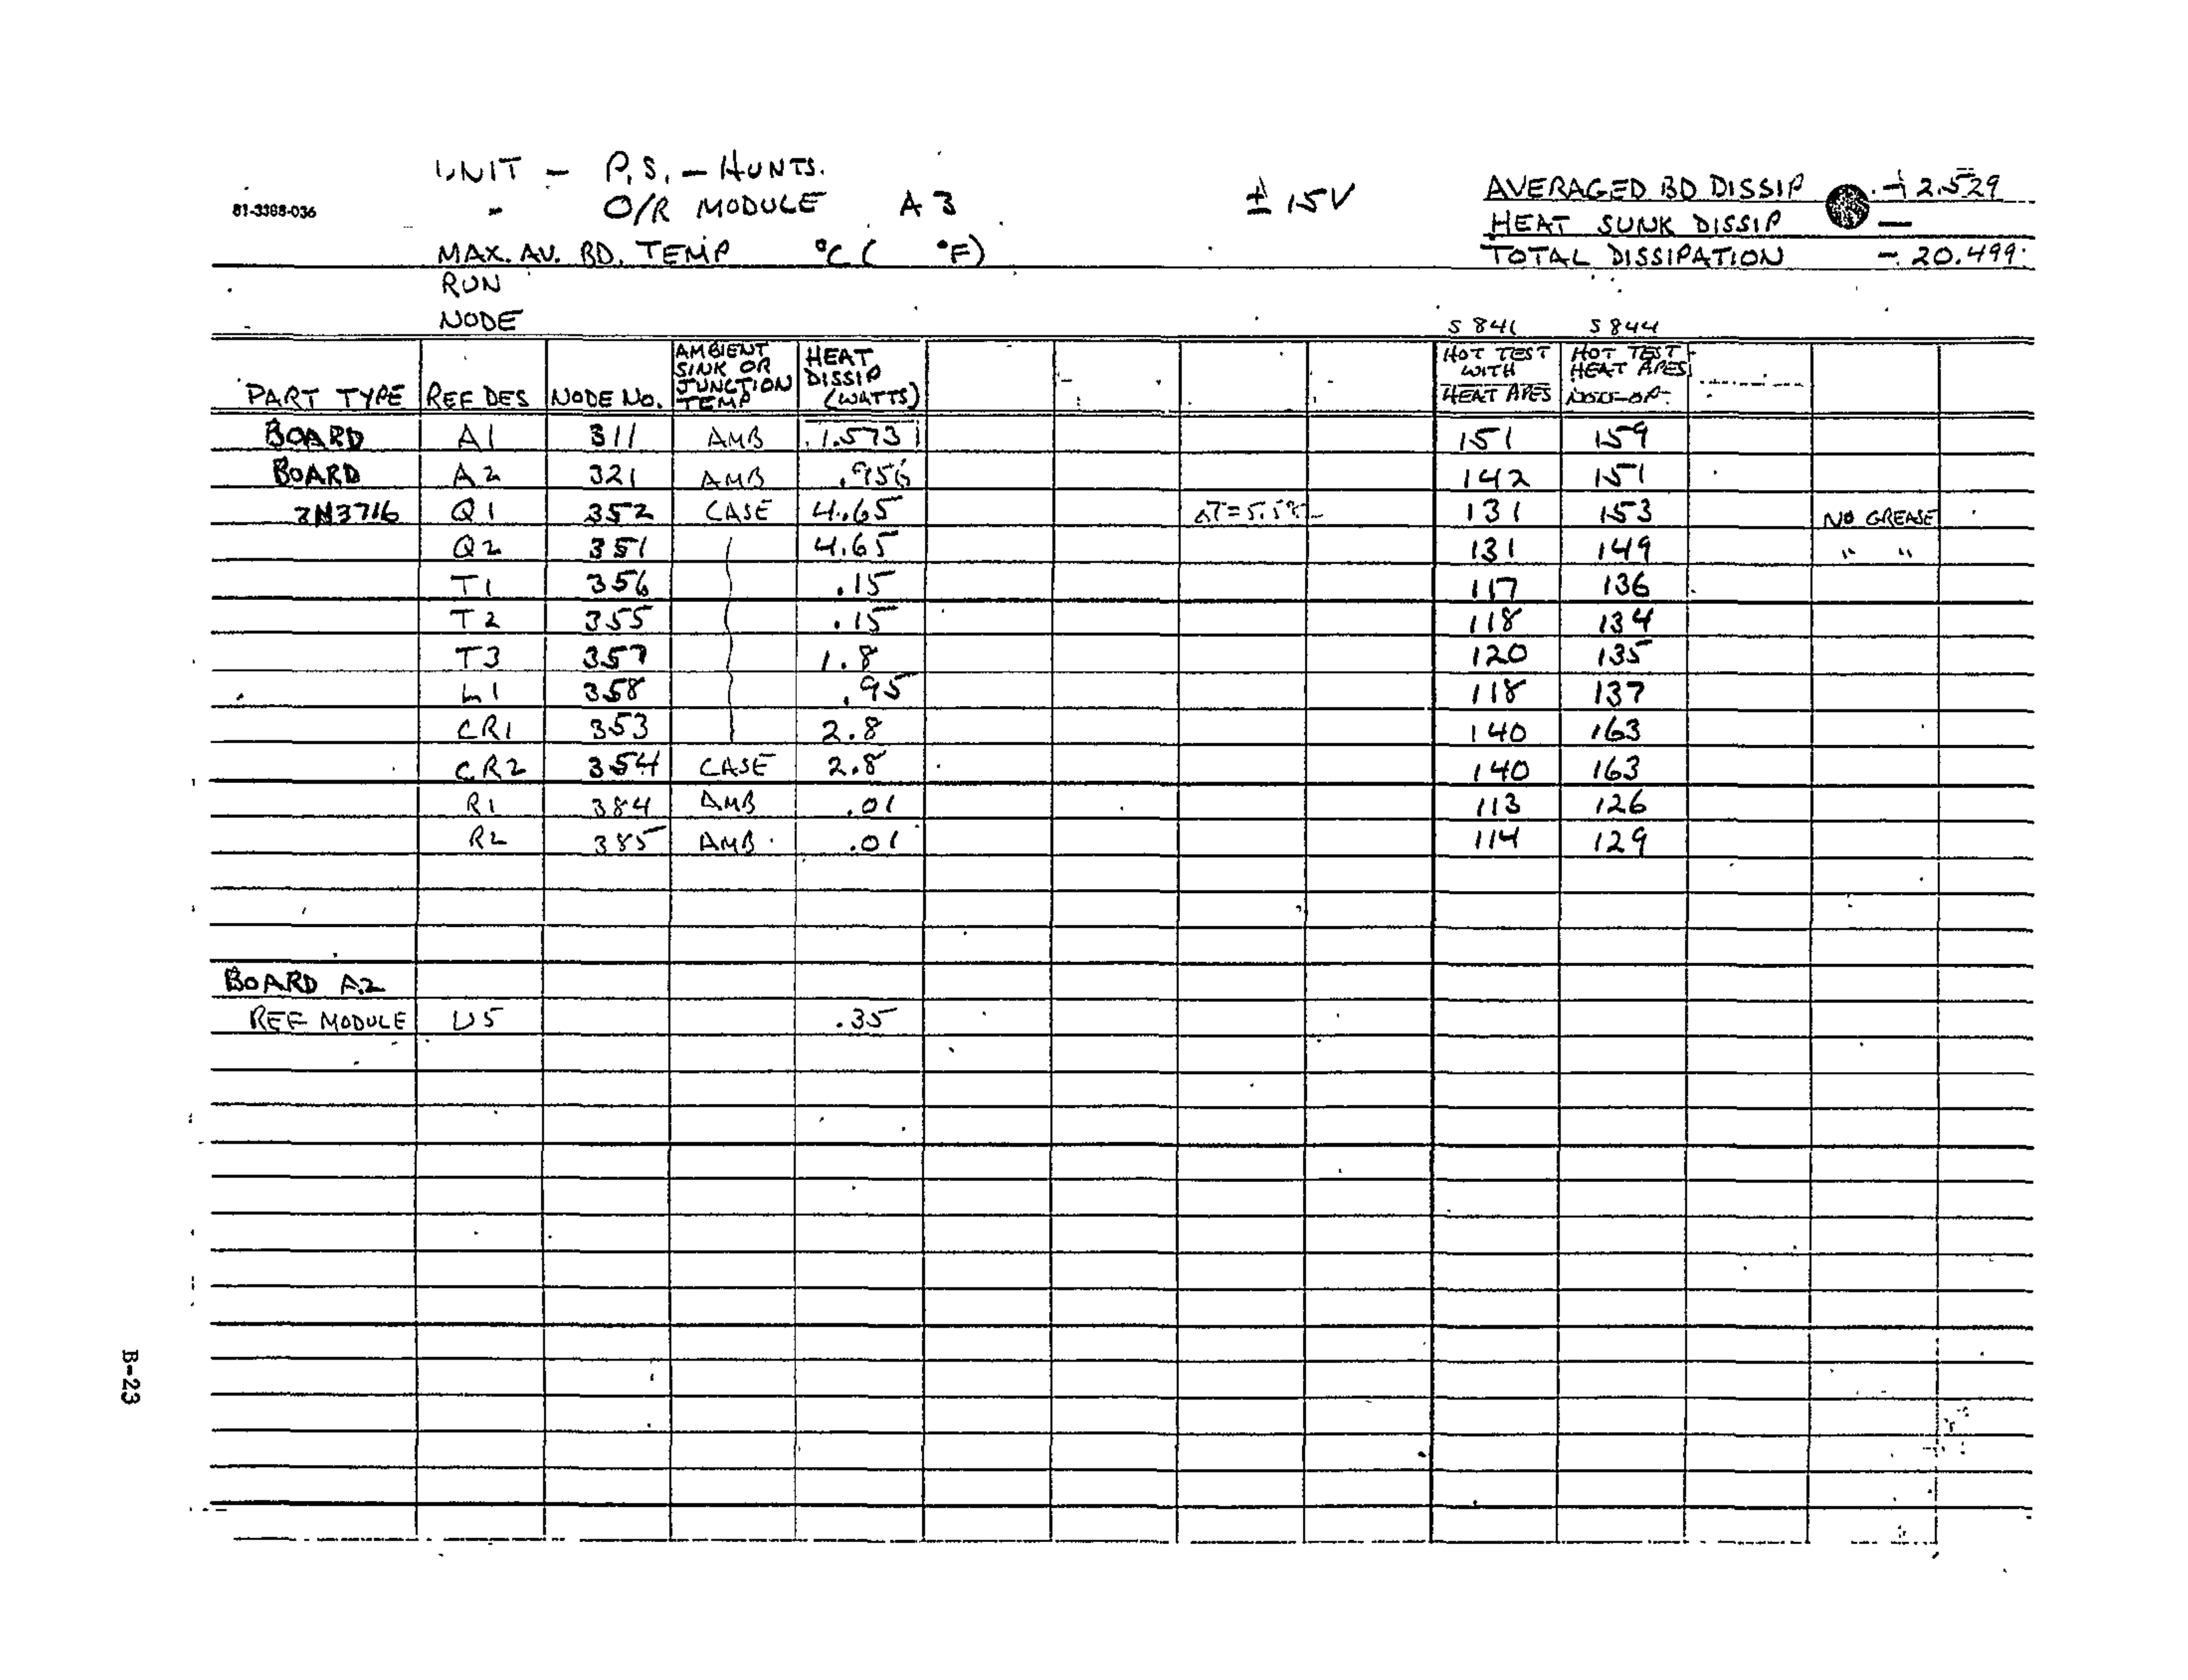 UNIT - P.S. - HUNTS.
81-3388-036 - O/R MODULE A3 ± 15V
AVERAGED BD DISSIP - 2.529
HEAT SUNK DISSIP —
MAX. AV. BD. TEMP °C ( °F)
TOTAL DISSIPATION - 20.499
RUN
NODE
S 841 S 844
PART TYPE REF DES NODE NO. AMBIENT SINK OR JUNCTION TEMP HEAT DISSIP (WATTS) HOT TEST WITH HEAT APES HOT TEST HEAT APES
BOARD A1 311 AMB 1.573 151 159
BOARD A2 321 AMB .956 142 151
2N3716 Q1 352 CASE 4.65 131 153 NO GREASE
Q2 351 4.65 131 149 " "
T1 356 .15 117 136
T2 355 .15 118 134
T3 357 1.8 120 135
L1 358 .95 118 137
CR1 353 2.8 140 163
CR2 354 CASE 2.8 140 163
R1 384 AMB .01 113 126
R2 385 AMB .01 114 129
BOARD A2
REF MODULE U5 .35
B-23